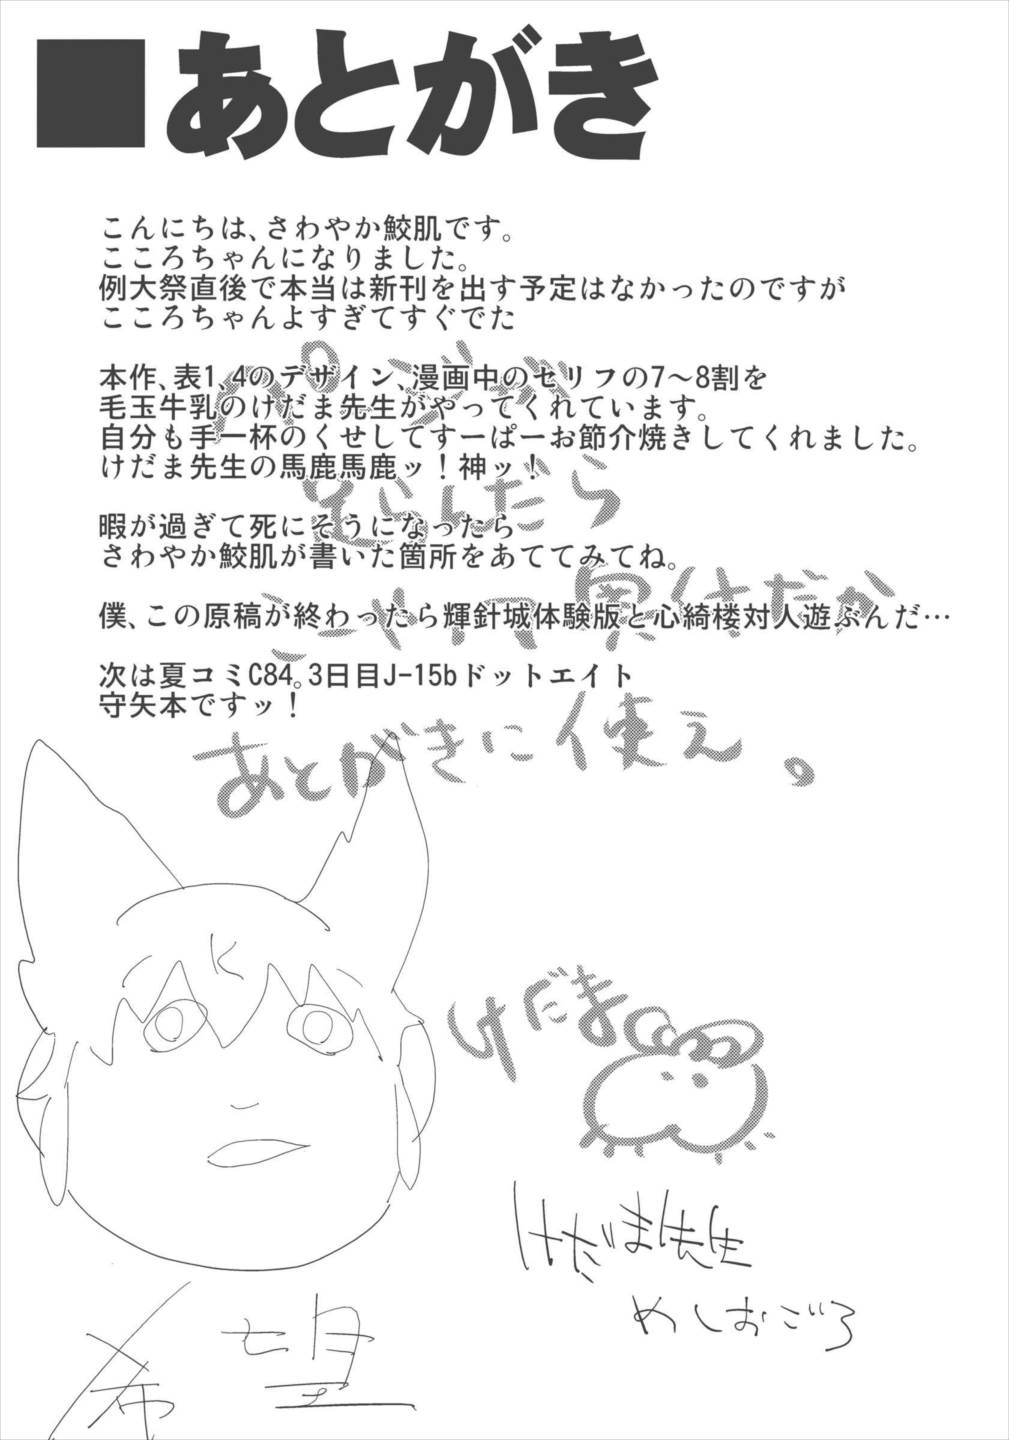 ■あとがき
こんにちは、さわやか鮫肌です。
こころちゃんになりました。
例大祭直後で本当は新刊を出す予定はなかったのですが
こころちゃんよすぎてすぐでた
本作、表1、4のデザイン、漫画中のセリフの7～8割を
毛玉牛乳のけだま先生がやってくれています。
自分も手一杯のくせしてすーぱーお節介焼きしてくれました。
けだま先生の馬鹿馬鹿ッ！神ッ！
暇が過ぎて死にそうになったら
さわやか鮫肌が書いた箇所をあててみてね。
僕、この原稿が終わったら輝針城体験版と心綺楼対人遊ぶんだ…
次は夏コミC84。3日目J-15bドットエイト
守矢本ですッ！
足らんだら
あとがきに使え。
けだま
けだま先生
めしおごろ
希望